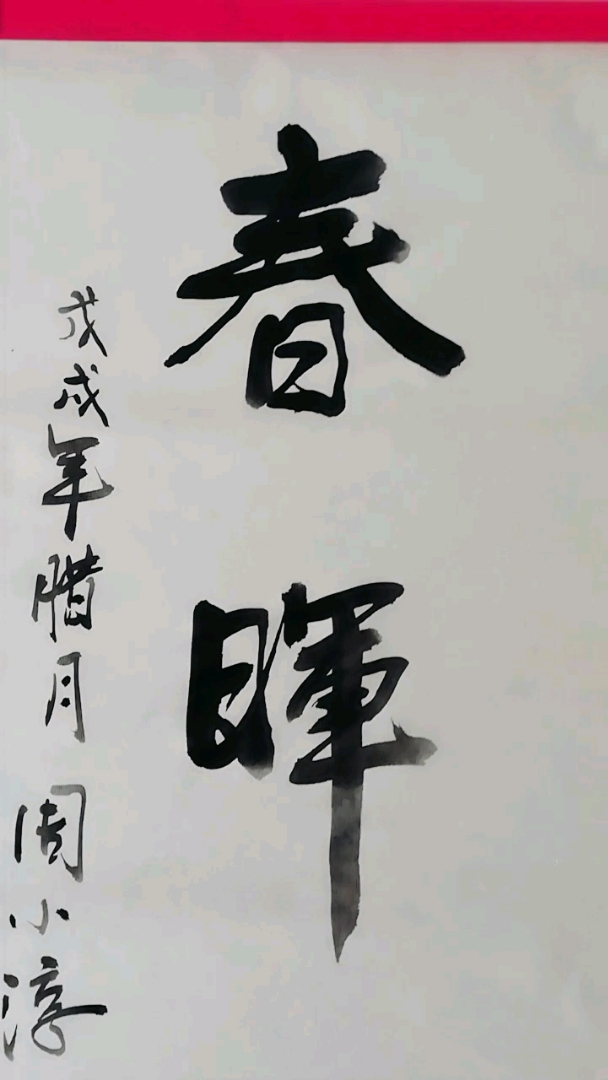 春暉
戊戌年腊月 周小淳